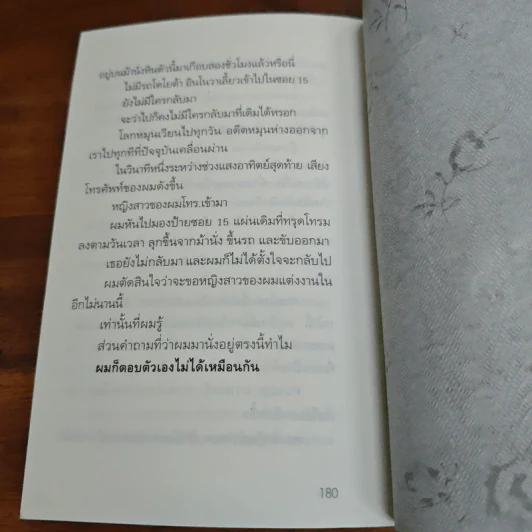 อยู่บนม้านั่งหินตัวนี้มาเกือบสองชั่วโมงแล้วหรือนี่
ไม่มีรถโตโยต้า อินโนวาเลี้ยวเข้าไปในซอย 15
ยังไม่มีใครกลับมา
จะว่าไปก็คงไม่มีใครกลับมาที่เดิมได้หรอก
โลกหมุนเวียนไปทุกวัน อดีตหมุนห่างออกจาก
เราไปทุกทีที่ปัจจุบันเคลื่อนผ่าน
ในวินาทีหนึ่งระหว่างช่วงแสงอาทิตย์สุดท้าย เสียง
โทรศัพท์ของผมดังขึ้น
หญิงสาวของผมโทร.เข้ามา
ผมหันไปมองป้ายซอย 15 แผ่นเดิมที่ทรุดโทรม
ลงตามวันเวลา ลุกขึ้นจากม้านั่ง ขึ้นรถ และขับออกมา
เธอยังไม่กลับมา และผมก็ไม่ได้ตั้งใจจะกลับไป
ผมตัดสินใจว่าจะขอหญิงสาวของผมแต่งงานใน
อีกไม่นานนี้
เท่านั้นที่ผมรู้
ส่วนคำถามที่ว่าผมมานั่งอยู่ตรงนี้ทำไม
ผมก็ตอบตัวเองไม่ได้เหมือนกัน
180